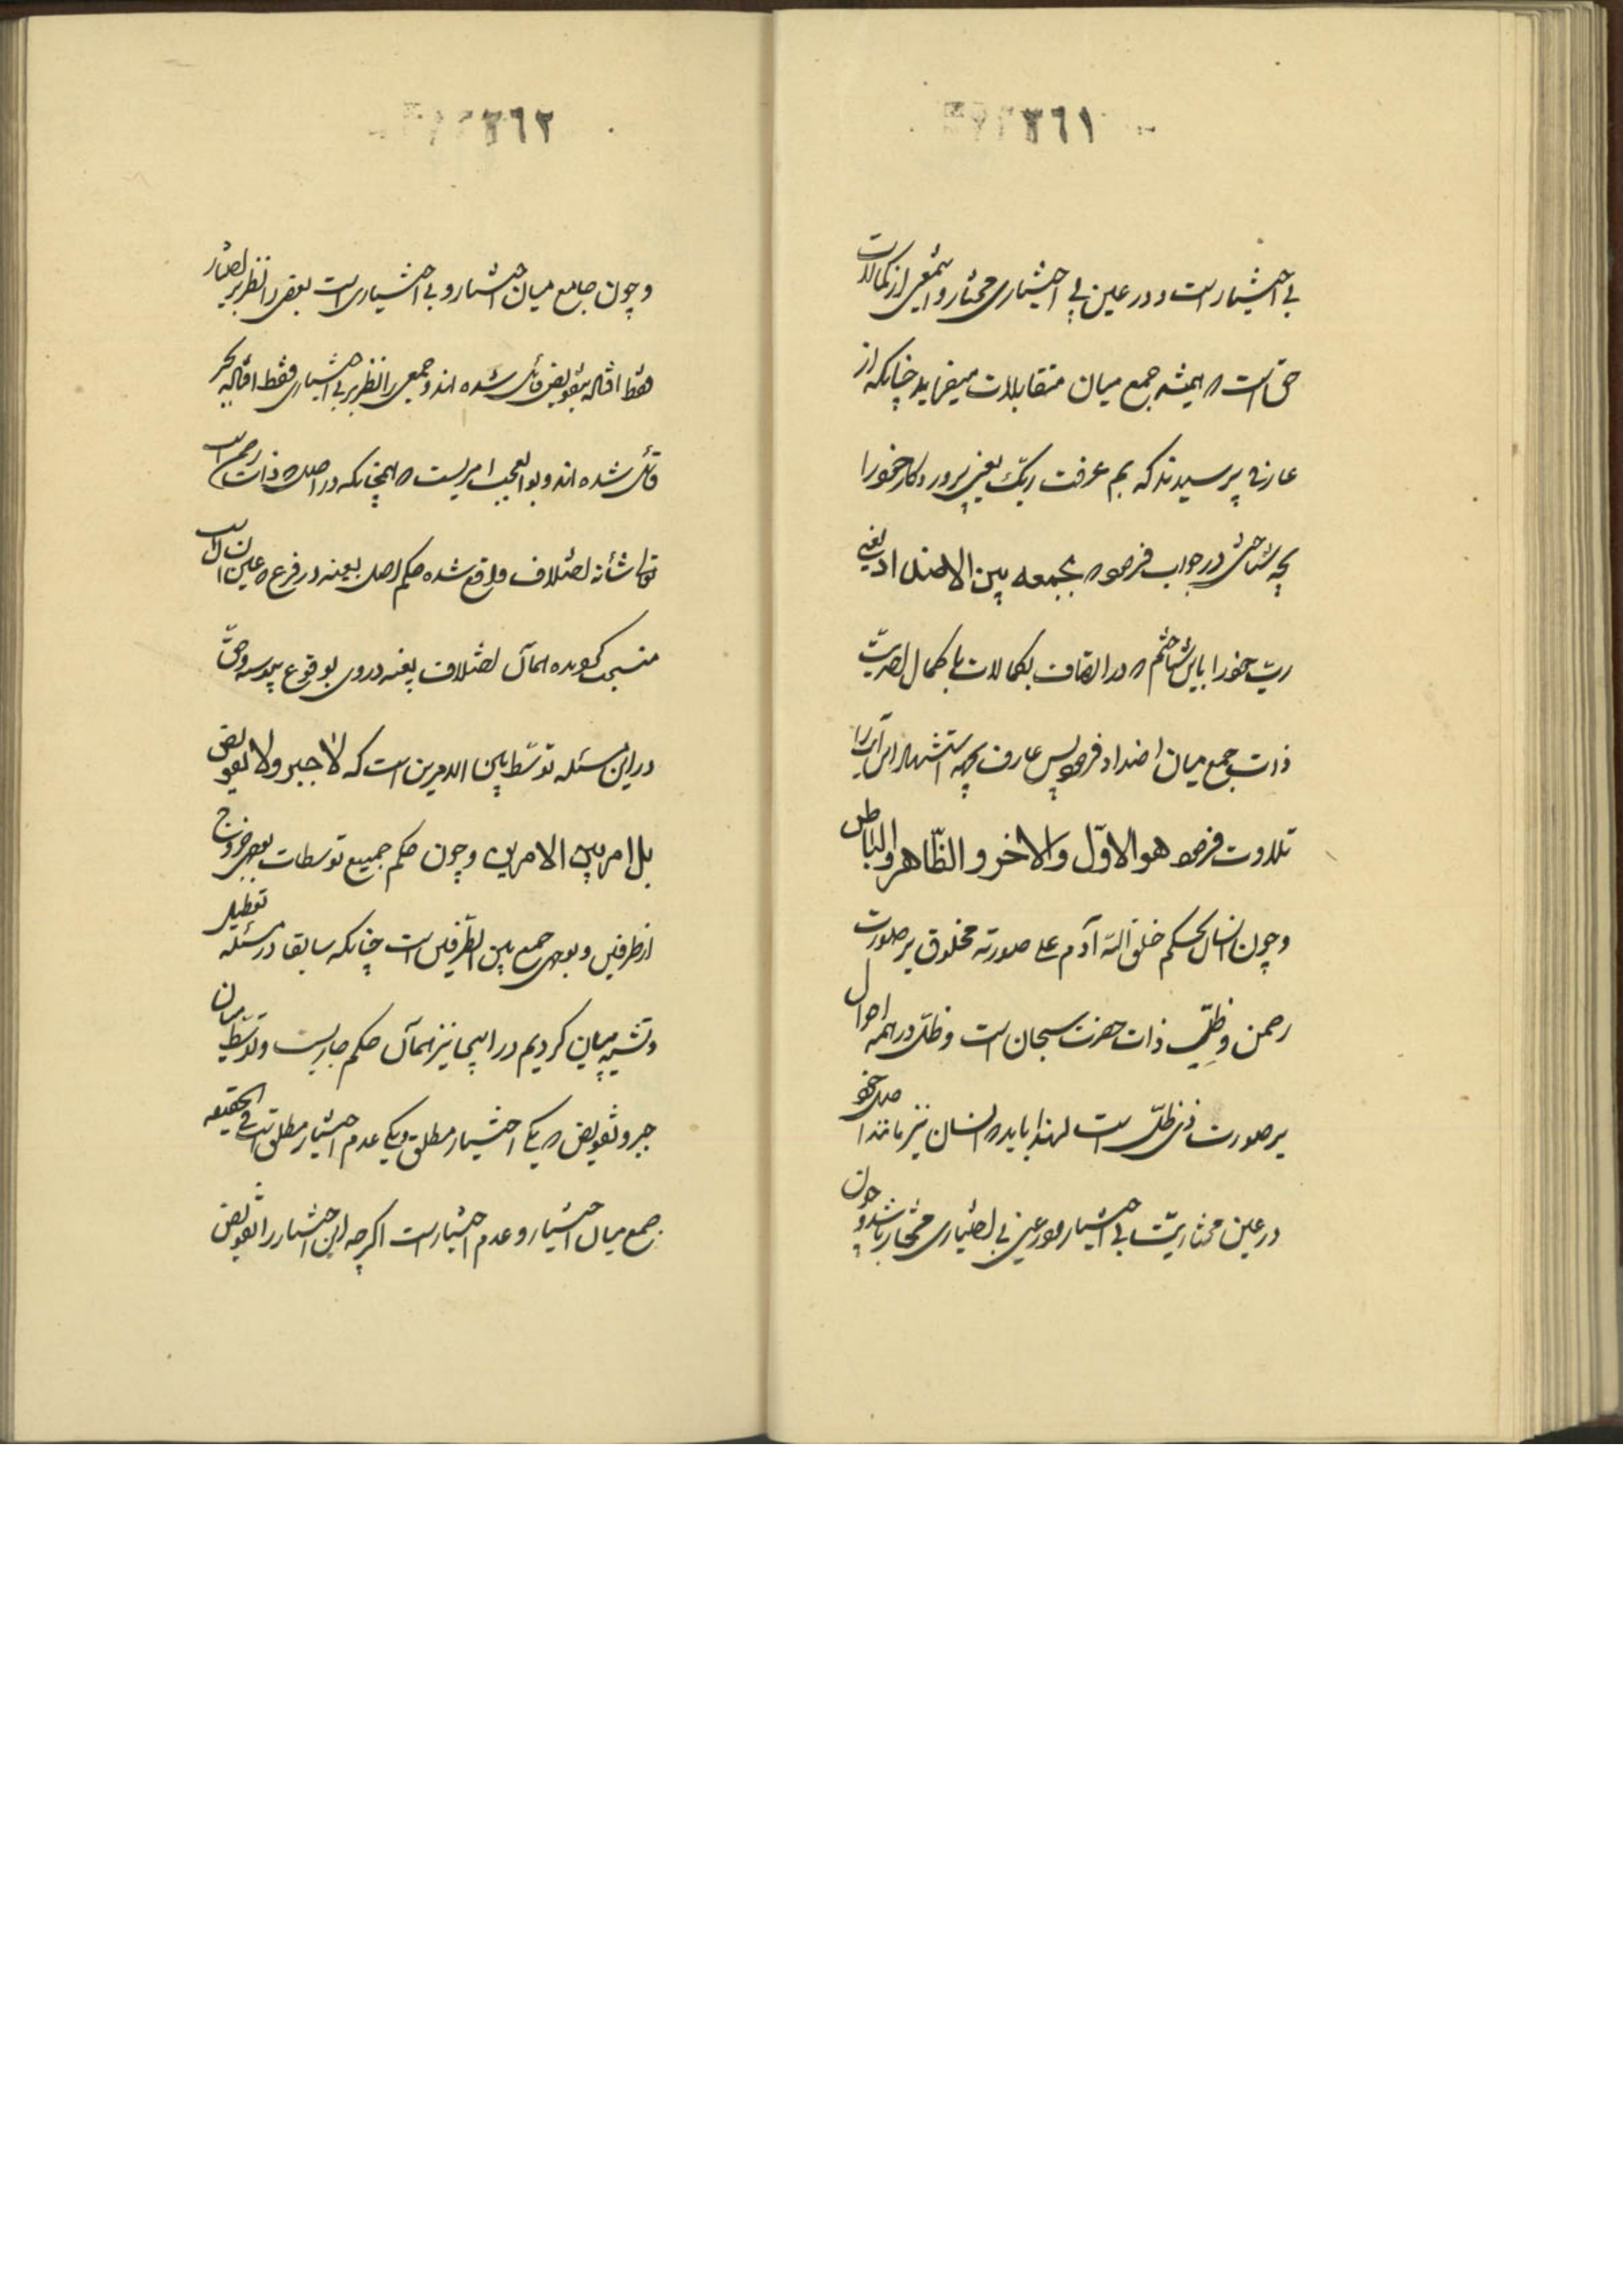 ٣٦١
بی اختیار است و در عین بی اختیاری مختار و این معنی از کمالات
حق است که همیشه جمع میان متقابلات میفرماید چنانکه از
عارفی پرسیدند که بم عرفت ربّک یعنی پروردکار خود را
بچه شناختی در جواب فرمود که بجمعه بین الاضداد یعنی
ربّ خود را باین شناختم که در اتصاف بکمالات با کمال احدیّت
ذات جمع میان اضداد فرمود پس عارف بجهه استشهاد این آیه را
تلاوت فرمود هو الاوّل والاخر و الظّاهر والباطن
و چون انسان بحکم خلق اللّه آدم علی صورته مخلوق بر صورت
رحمن و ظلّ ذات حضرت سبحان است و ظلّ در همه احوال
بر صورت ذی ظلّ است لهذا باید که انسان نیز مانند اصل خود
در عین مختاریّت بی اختیار و در عین بی اختیاری مختار باشد و چون
٣٦٢
و چون جامع میان اختیار و بی اختیاری است بعضی را نظر بر اختیار
فقط افتاده بتفویض قائل شده اند و جمعی را نظر بر بی اختیاری فقط افتاده بجبر
قائل شده اند و بوالعجب امریست که همچنانکه در اصل که ذات
تعالی شأنه اختلاف واقع شده حکم اصل بعینه در فرع که عین
منسحب کردیده همان اختلاف بعینه در وی بوقوع پیوسته و حقّ
در این مسئله توسّط بین الامرین است که لا جبر و لا تفویض
بل امر بین الامرین و چون حکم جمیع توسطات بوجهی خروج
از طرفین و بوجهی جمع بین الطّرفین است چنانکه سابقا در مسئله تعطیل
و تشبیه بیان کردیم در اینجا نیز همان حکم جاریست و توسّط میان
جبر و تفویض که یکی اختیار مطلق و یکی عدم اختیار مطلق است فی الحقیقه
جمع میان اختیار و عدم اختیار است اکرچه این اختیار را تفویض